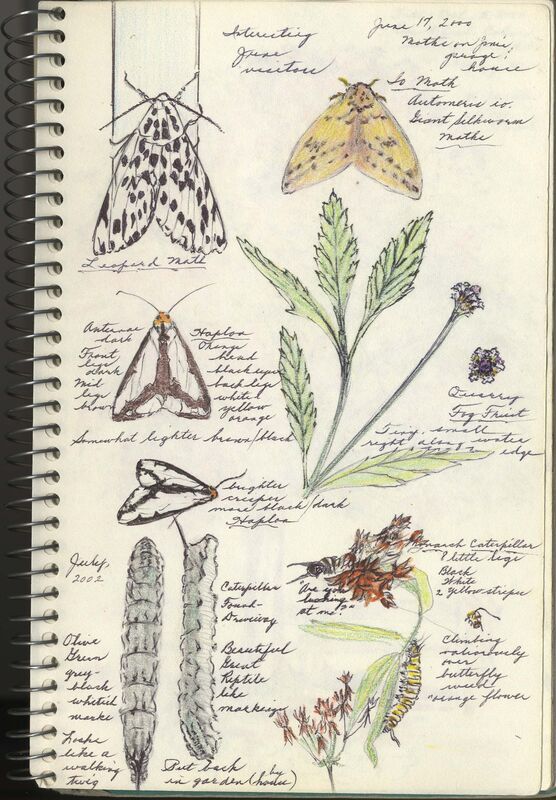 Interesting
June
visitors
June 17, 2000
Moths on
house
Io Moth
Automeris io.
Giant Silkworm
Moths
Leopard Moth
Antennae
dark
Front
legs
dark
Mid
legs
brown
Haploa
Orange
head
black eyes
back legs
white
yellow
orange
Somewhat lighter brown/black
Quarry
Fog Fruit
Tiny, small
right along water
edge
brighter
creeper
more black/dark
Haploa
July,
2002
Olive
Green
grey-
black
whitish
marks
Looks
like a
walking
twig
Caterpillar
Found
Driveway
Beautiful
Great
Reptile
like
markings
Put back
in garden (by hosta)
"Are you
looking
at me?"
Monarch Caterpillar
8 little legs
Black
White
2 Yellow stripes
Climbing
over
butterfly
weed
"orange flower